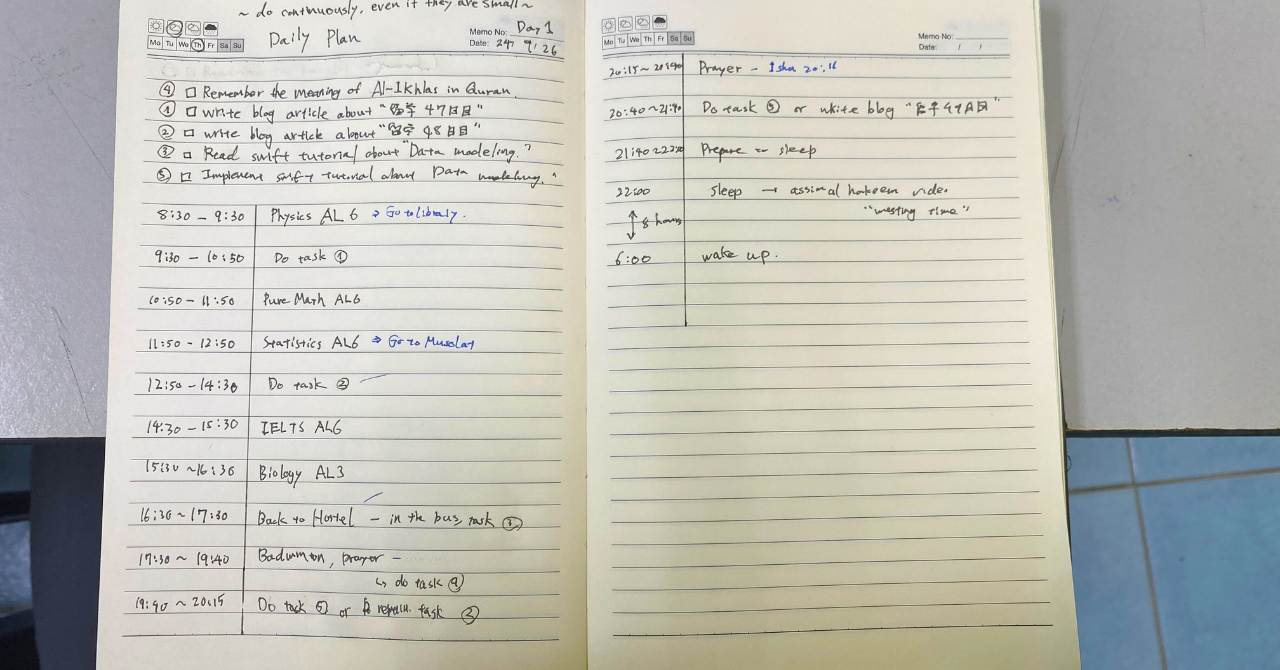 ~ do continuously, even if they are small ~
Mo Tu We Th Fr Sa Su
Daily Plan
Memo No: Day 1
Date: 24, 9, 26
④ □ Remember the meaning of Al-Ikhlas in Quran.
① □ write blog article about "留学 47日目"
② □ write blog article about "留学 48日目"
③ □ Read swift tutorial about "Data modeling."
⑤ □ Implement swift tutorial about Data modeling."
8:30 - 9:30 Physics AL 6 ⇒ Go to library.
9:30 - 10:50 Do task ①
10:50 - 11:50 Pure Math AL6
11:50 - 12:50 Statistics AL6 ⇒ Go to
12:50 - 14:30 Do task ②
14:30 - 15:30 IELTS AL6
15:30 ~ 16:30 Biology AL3
16:30 ~ 17:30 Back to Hostel - in the bus, task ③
17:30 ~ 19:40 Badminton, prayer -
↳ do task ④
19:40 ~ 20:15 Do task ⑤ or task ②
Mo Tu We Th Fr Sa Su
Memo No:
Date: / /
20:15 ~ 20:40 Prayer - Isha
20:40 ~ 21:40 Do task ⑤ or write blog
21:40 Prepare sleep
22:00 sleep → assimal hakeem video
↕ 8 hours
6:00 wake up.